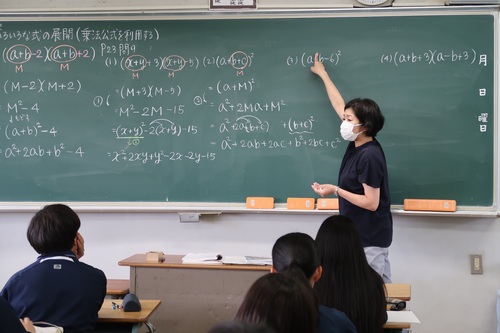 いろいろな式の展開(乗法公式を利用する)
P23問9
((a+b)-2)((a+b)+2)
M M
(M-2)(M+2)
M²-4
(a+b)²-4
=a²+2ab+b²-4
(1) ((x+y)+3)((x+y)-5)
M M
(M+3)(M-5)
=M²-2M-15
=(x+y)²-2(x+y)-15
=x²+2xy+y²-2x-2y-15
(2) (a+(b+c))²
M
(a+M)²
a²+2Ma+M²
a²+2a(b+c)+(b+c)²
a²+2ab+2ac+b²+2bc+c²
(3) (a+b-6)²
(4) (a+b+3)(a-b+3)
月
日
曜
日